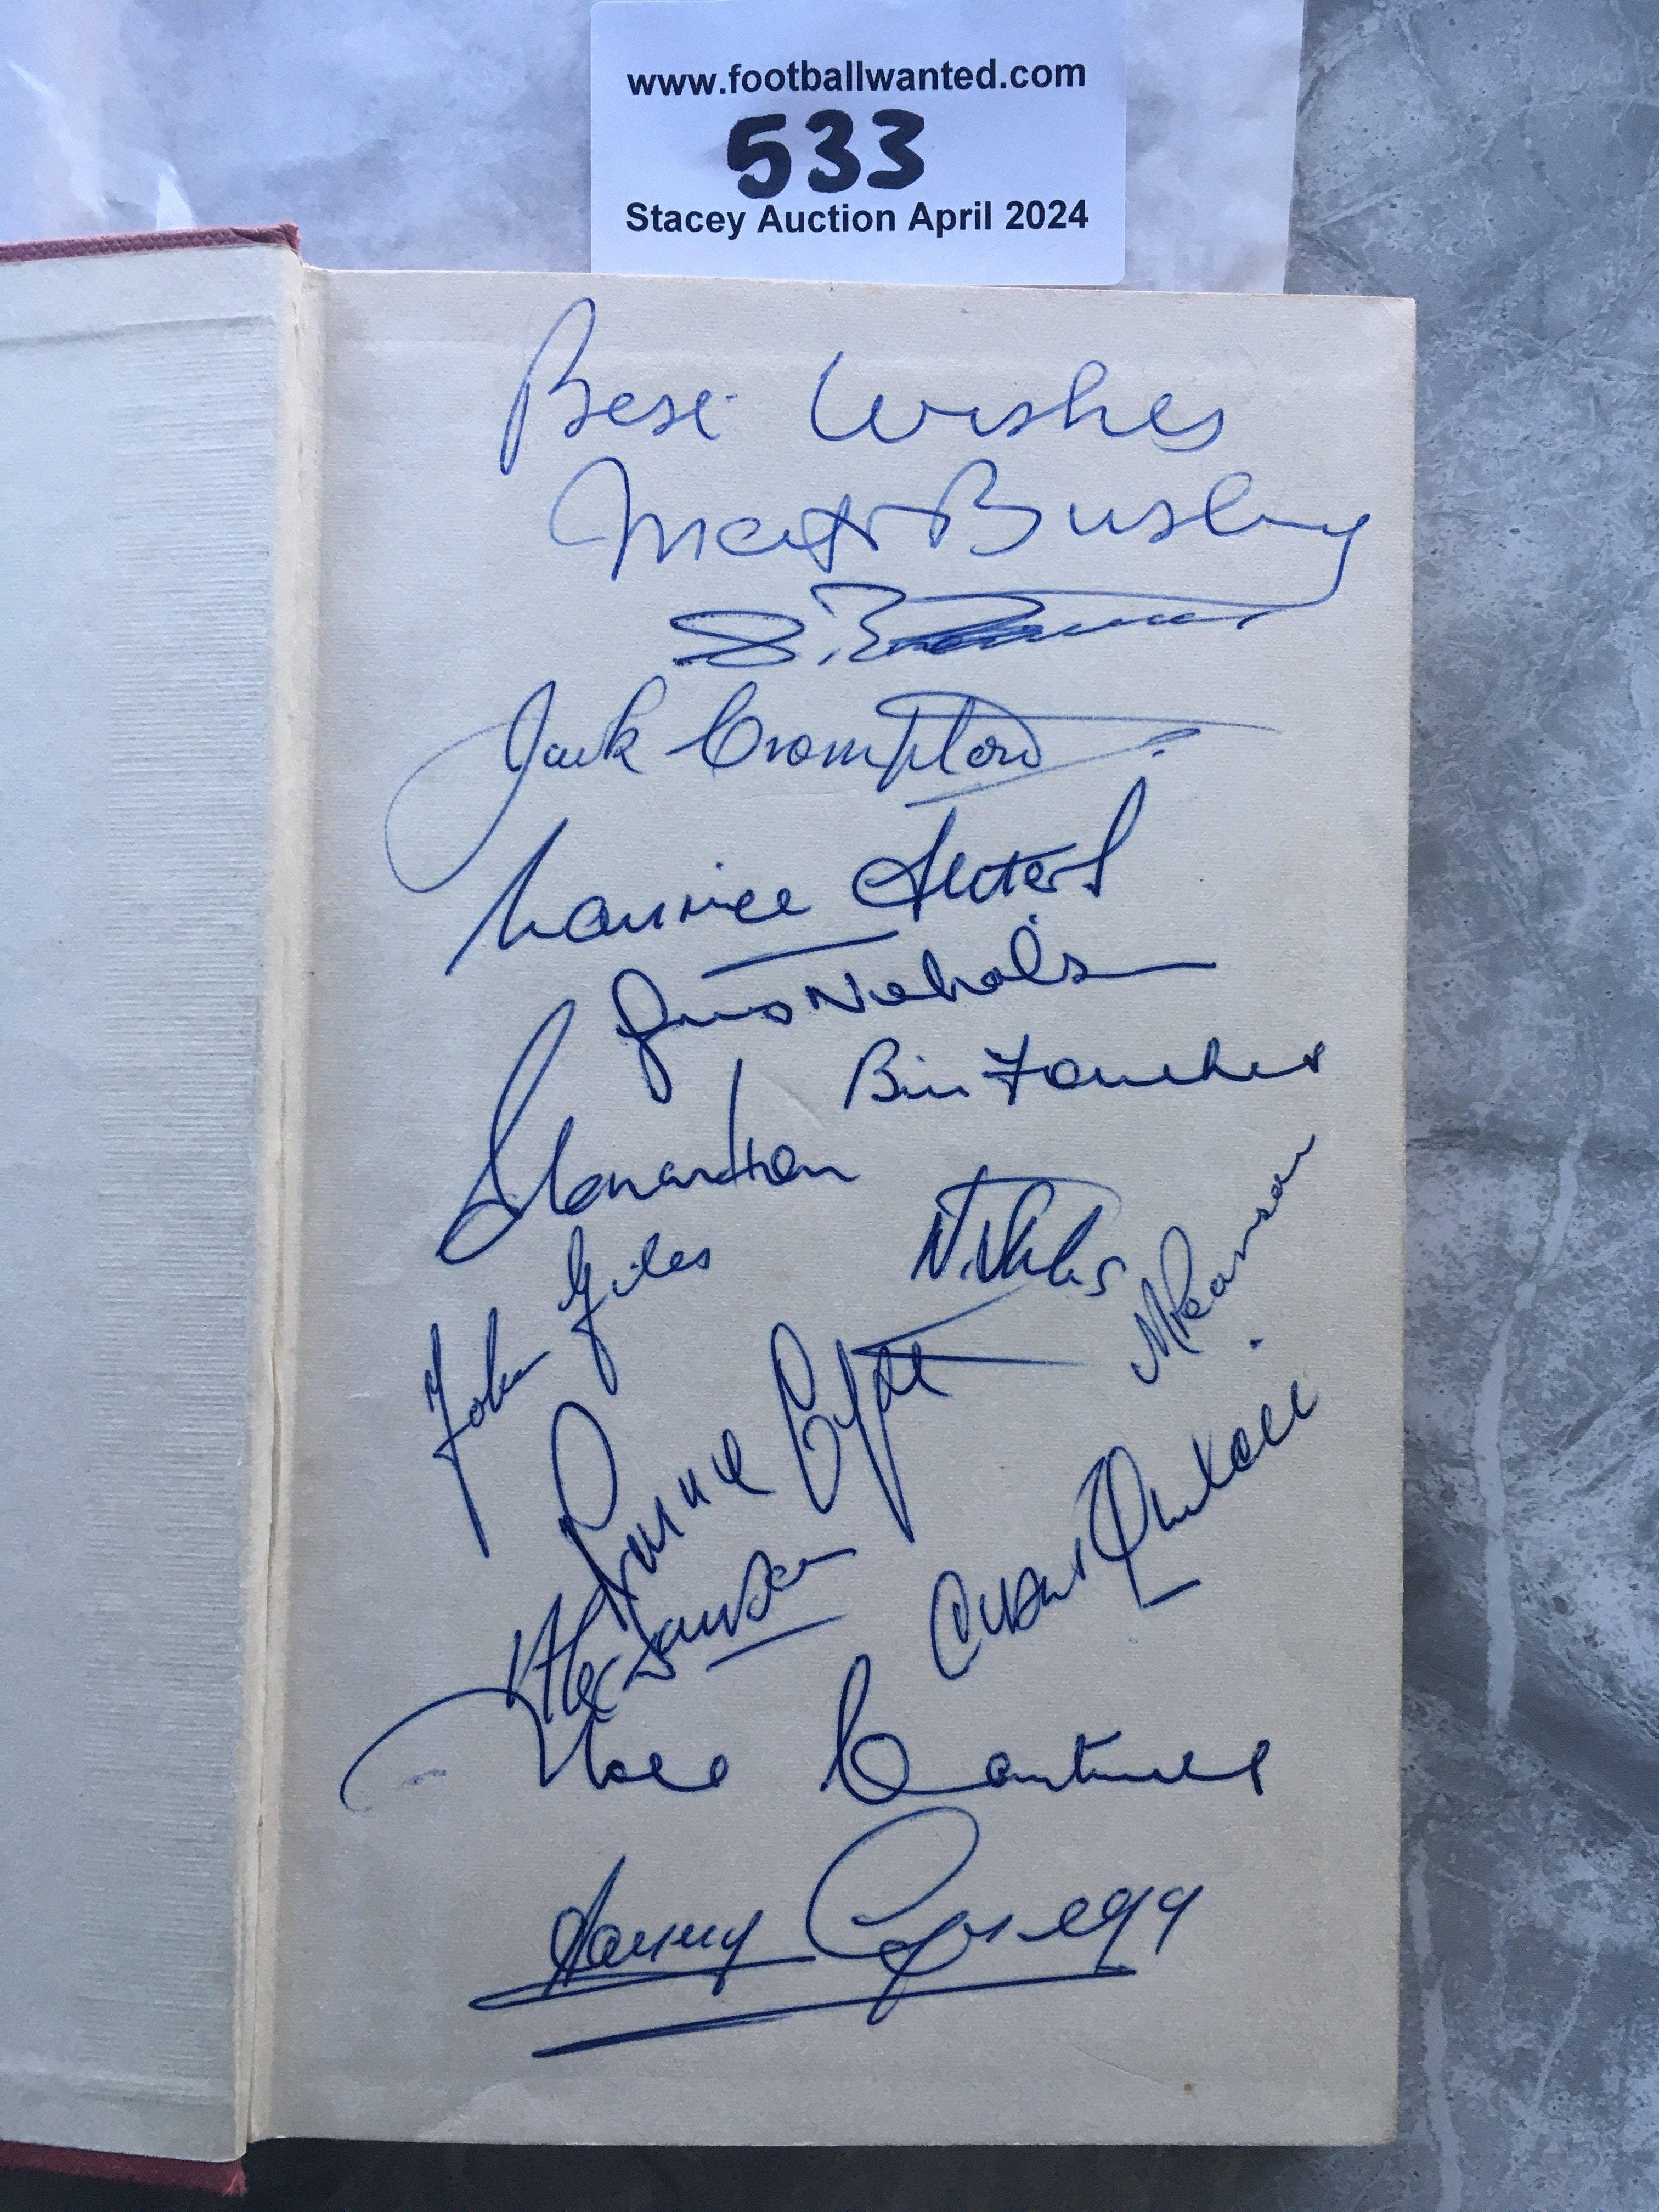 www.footballwanted.com
533
Stacey Auction April 2024
Best Wishes
Matt Busby
Jack Crompton
Maurice Setters
Jimmy Nicholson
Bill Foulkes
J Connaughton
John Giles
N. Stiles
M Pearson
Ronnie Cope
Alex Dawson
Albert Quixall
Noel Cantwell
Harry Gregg